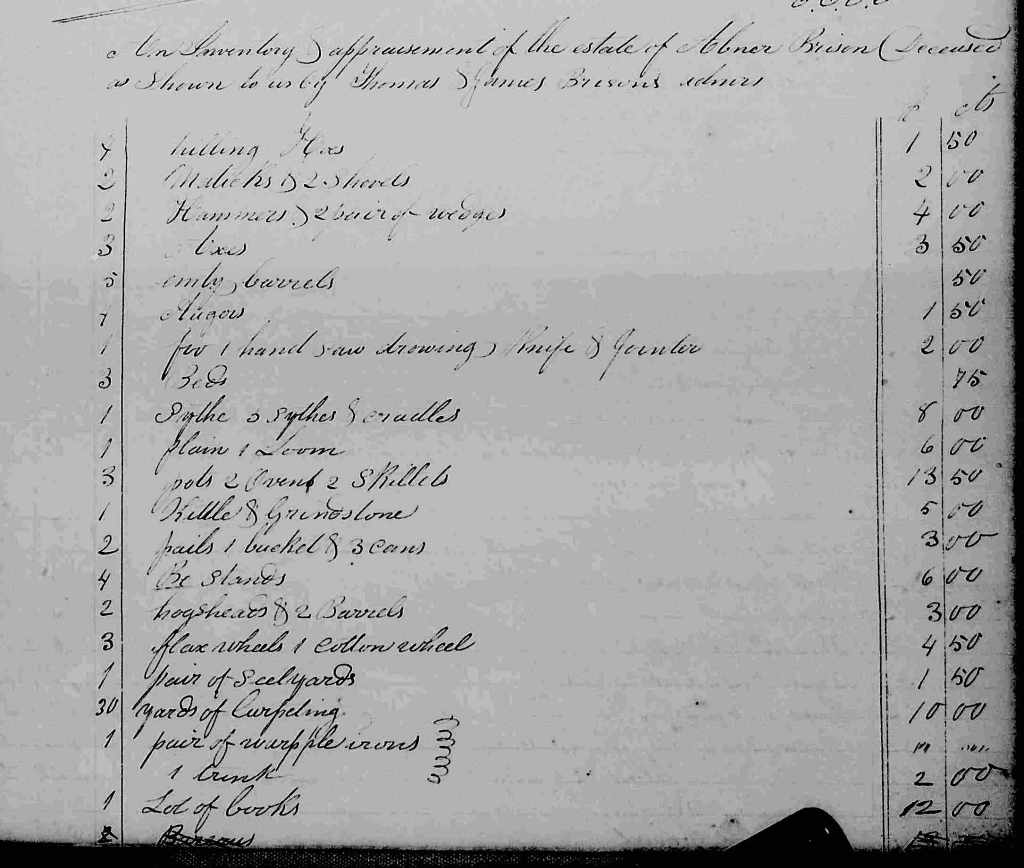 An Inventory & appraisement of the estate of Abner Brison (Deceased
as Shown to us by Thomas & James Brisons admrs
cts
hilling Hoes 1 50
2 Maticks & 2 Shovels 2 00
2 Hammers & 2 pair of wedges 4 00
3 Axes 3 50
5 emty barrels 50
Augors 1 50
1 1 hand saw drowing Knife & Jointer 2 00
3 Beds 75
1 Sythe 3 sythes & cradles 8 00
1 plain 1 Loom 6 00
3 pots 2 Ovens 2 Skillets 13 50
1 Kittle & Grindstone 5 00
2 pails 1 bucket & 3 cans 3 00
4 Be Stands 6 00
2 hogsheads & 2 Barrels 3 00
3 flax wheels 1 Cotton wheel 4 50
1 pair of Steelyards 1 50
30 yards of Carpeting 10 00
1 pair of warpple irons
1 trunk 2 00
1 Lot of books 12 00